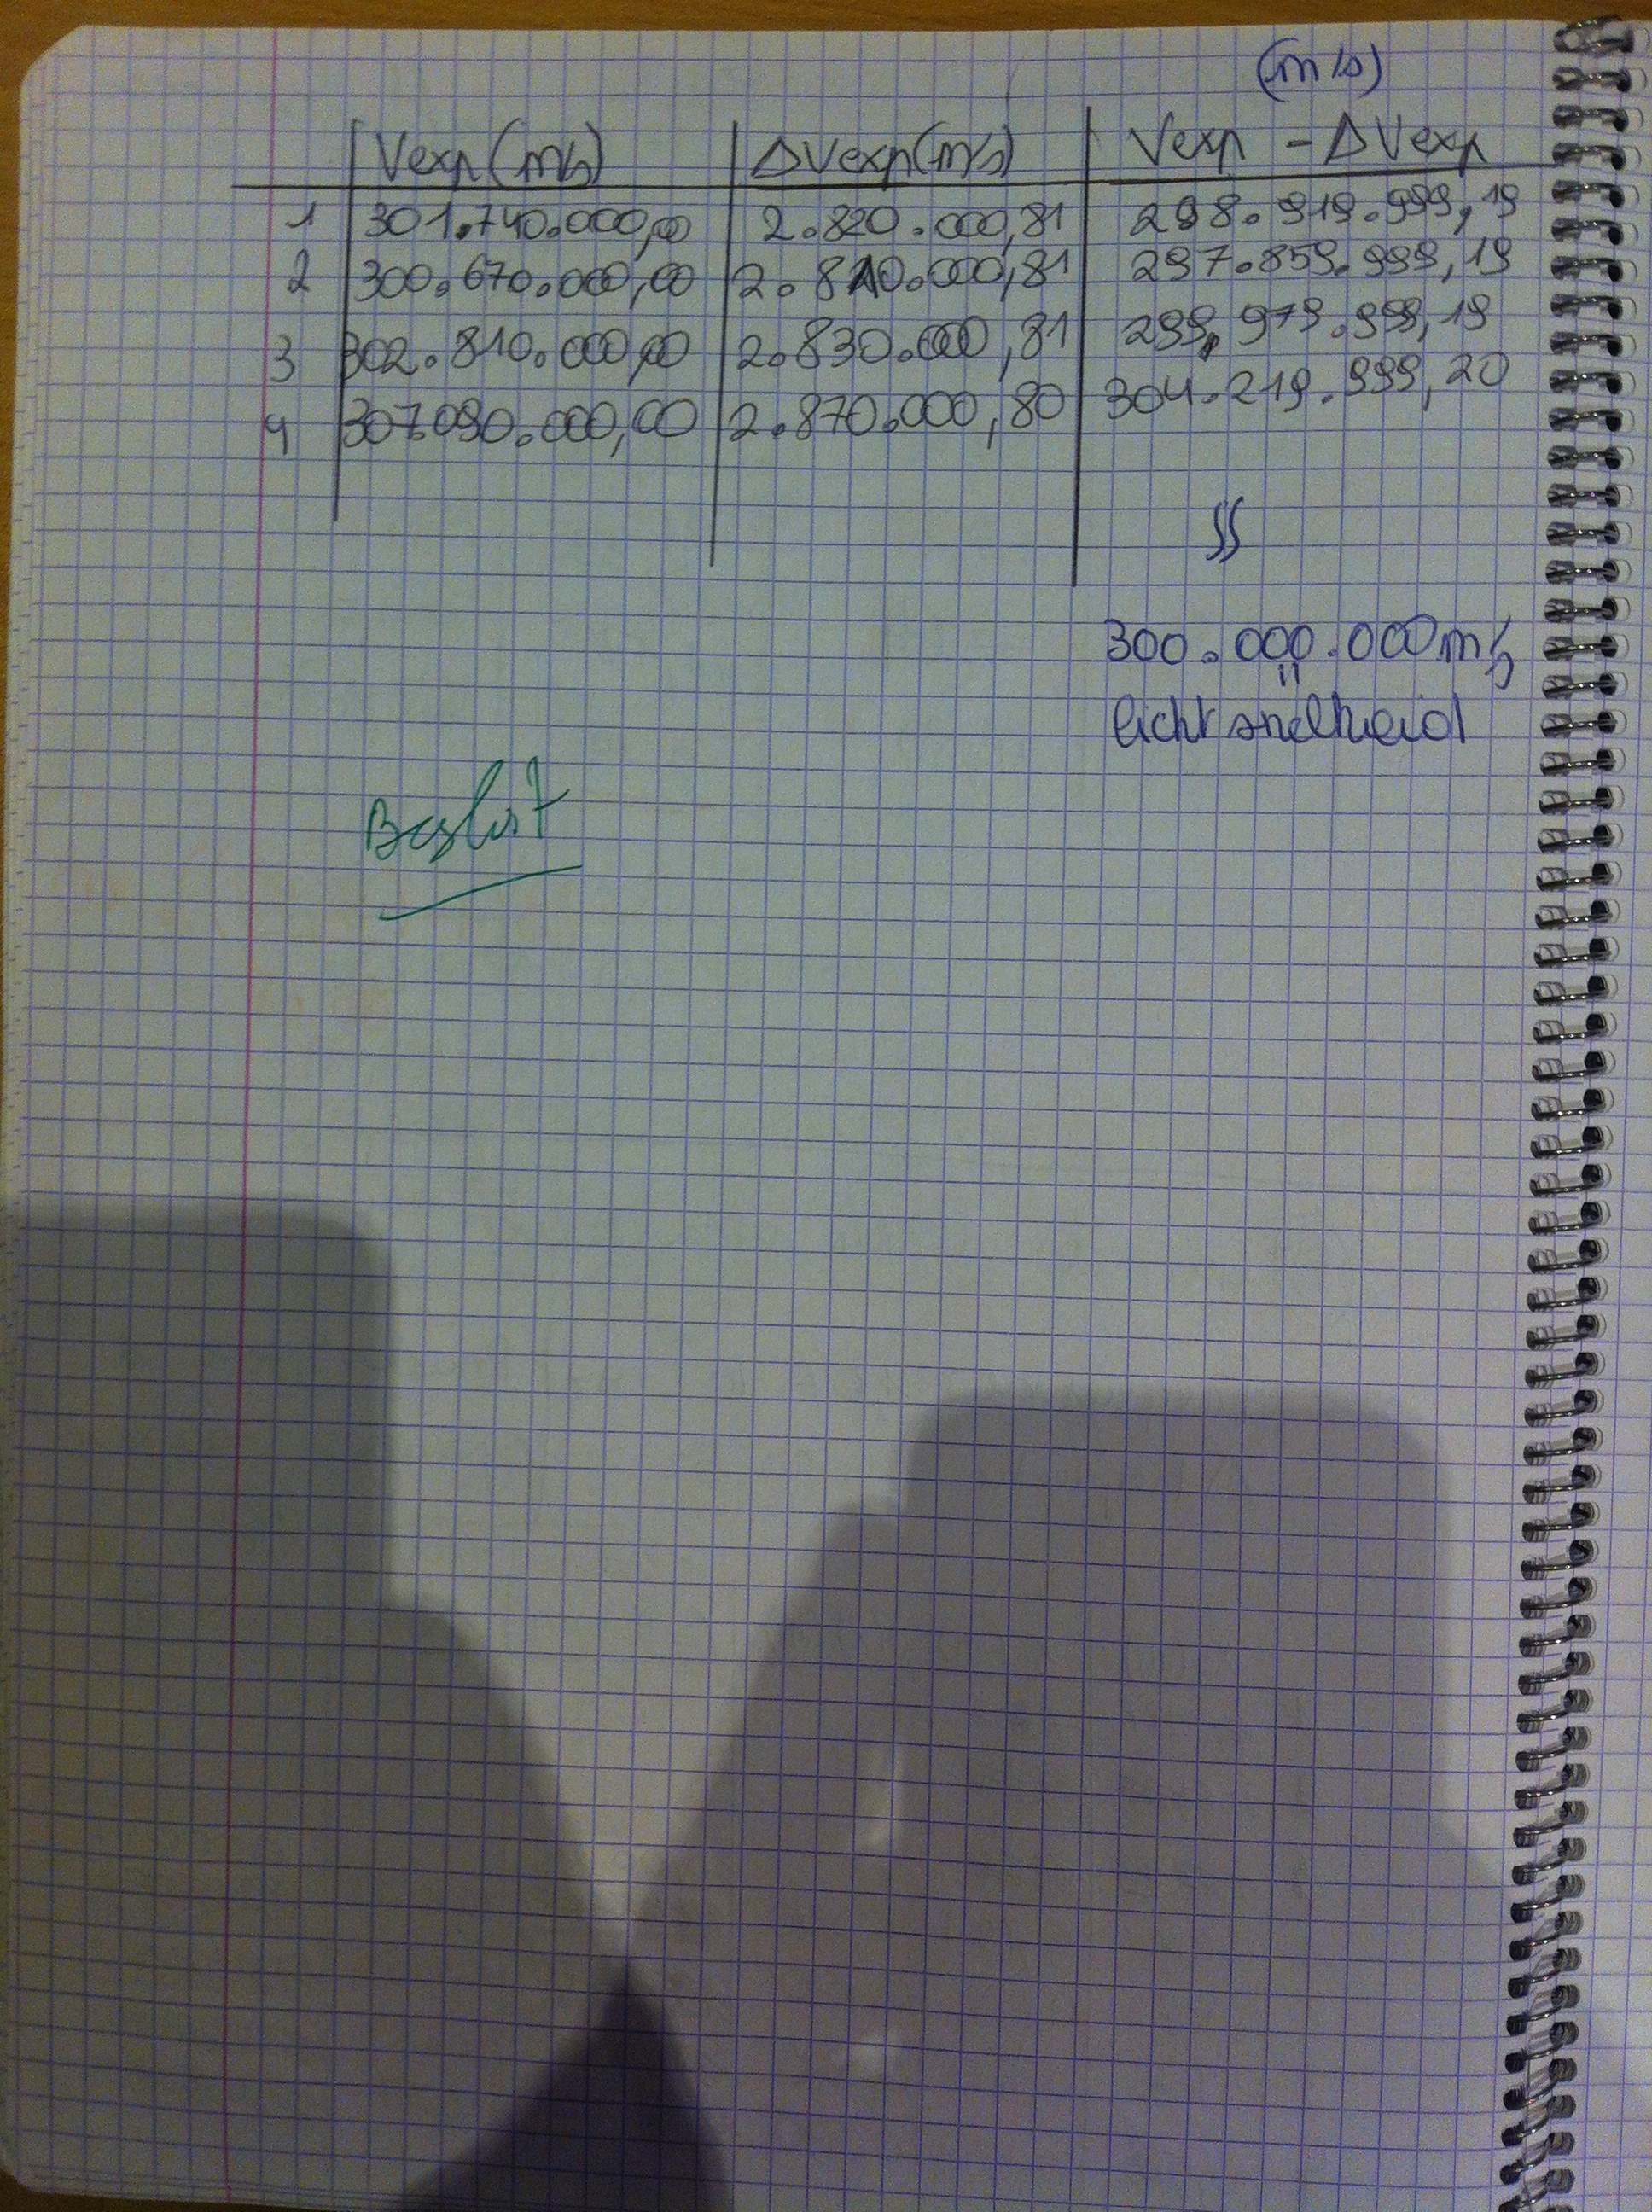 (m/s)
Vexp (m/s) ΔVexp (m/s) Vexp - ΔVexp
1 301.740.000,00 2.820.000,81 298.919.999,19
2 300.670.000,00 2.810.000,81 297.859.999,19
3 302.810.000,00 2.830.000,81 299.979.999,19
4 307.090.000,00 2.870.000,80 304.219.999,20
SS
300.000.000 m/s
=
lichtsnelheid
Besluit